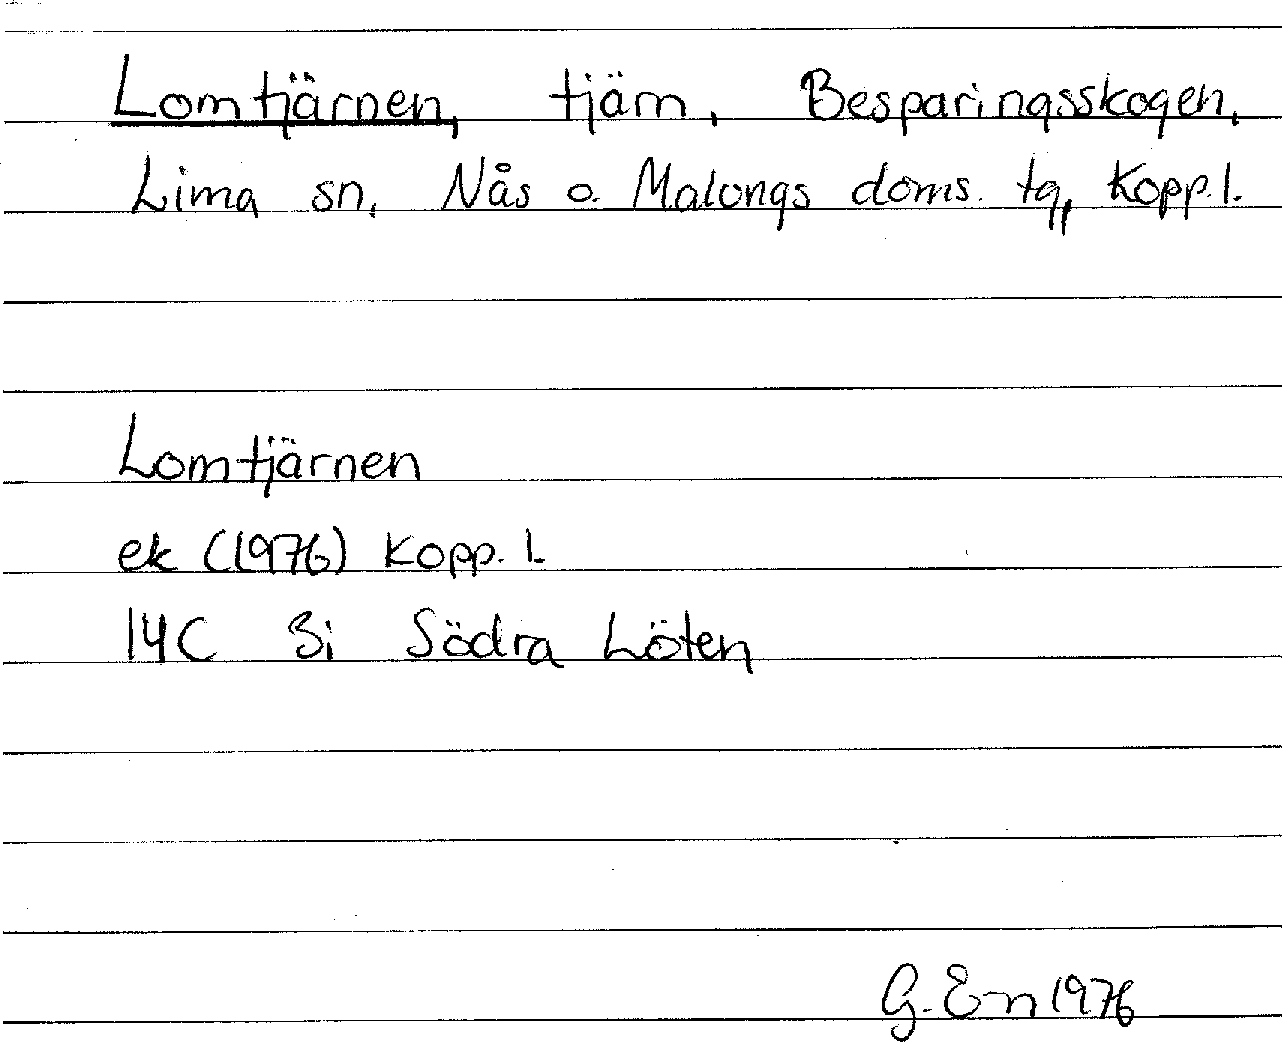 Lomtjärnen, tjärn, Besparingsskogen,
Lima sn, Nås o. Malungs doms. tg, Kopp.l.
Lomtjärnen
ek (1976) Kopp. l.
14C 3i Södra Löten
G. En 1976